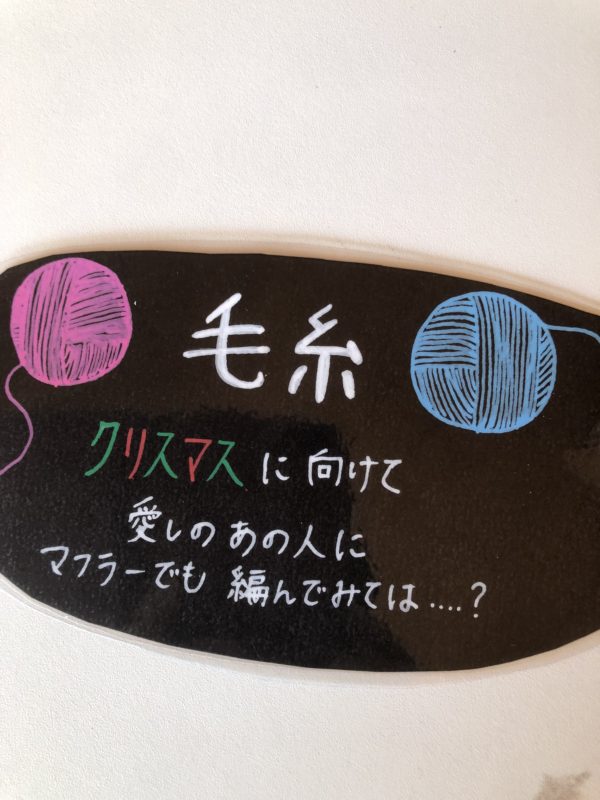 毛糸
クリスマスに向けて
愛しのあの人に
マフラーでも編んでみては....?